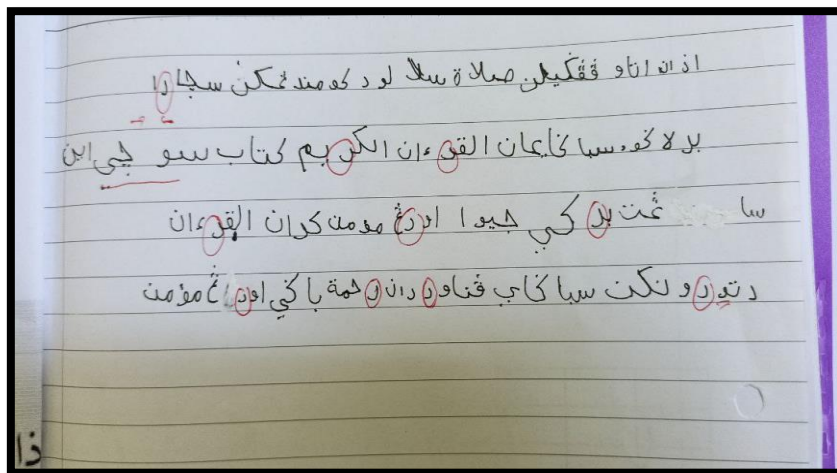 اذان اتاو ڤڠݢيلن صلاة سلالو دکومندڠکن سچارا
برلاکوء سباݢايمان القرءان الکريم کتاب سوچي اين
ساڠت برݢي جيوا اورڠ مومن کران القرءان
دتورونکن سباݢاي ڤناور دان رحمة باݢي اورڠ مؤمن
ذا